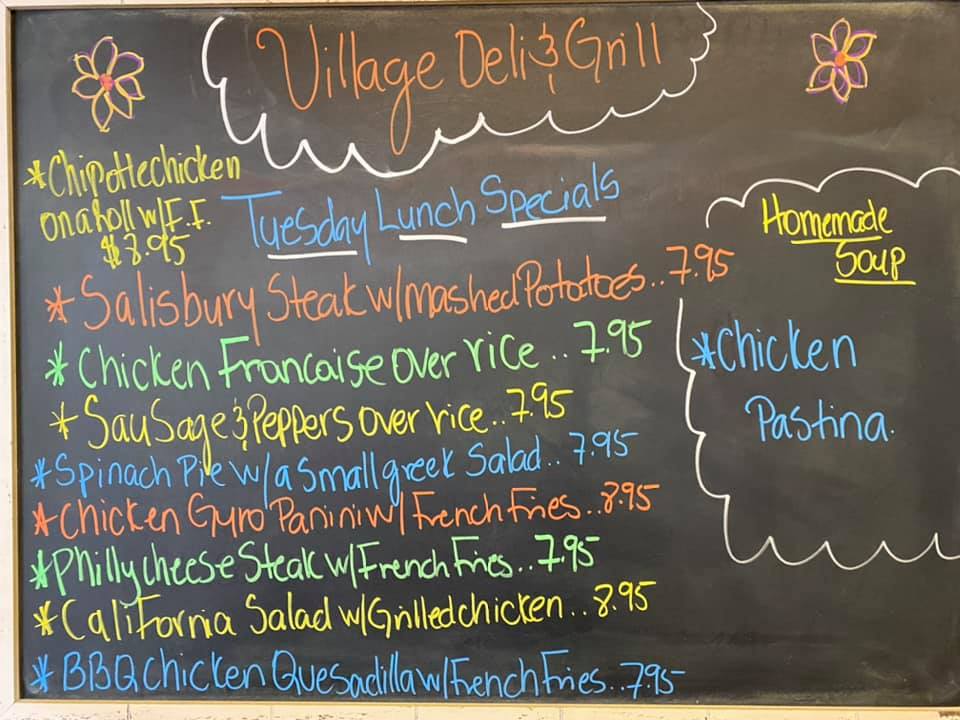 Village Deli & Grill
*Chipotle chicken
on a Roll w/F.F.
$8.95
Tuesday Lunch Specials
* Salisbury Steak w/mashed Potatoes..7.95
* Chicken Francaise over rice ..7.95
* Sausage & Peppers over rice..7.95
*Spinach Pie w/a Small greek Salad..7.95
*Chicken Gyro Panini w/French Fries..8.95
*Philly cheese Steak w/French Fries..7.95
*California Salad w/Grilled chicken..8.95
*BBQ Chicken Quesadilla w/French Fries..7.95
Homemade
Soup
*Chicken
Pastina.